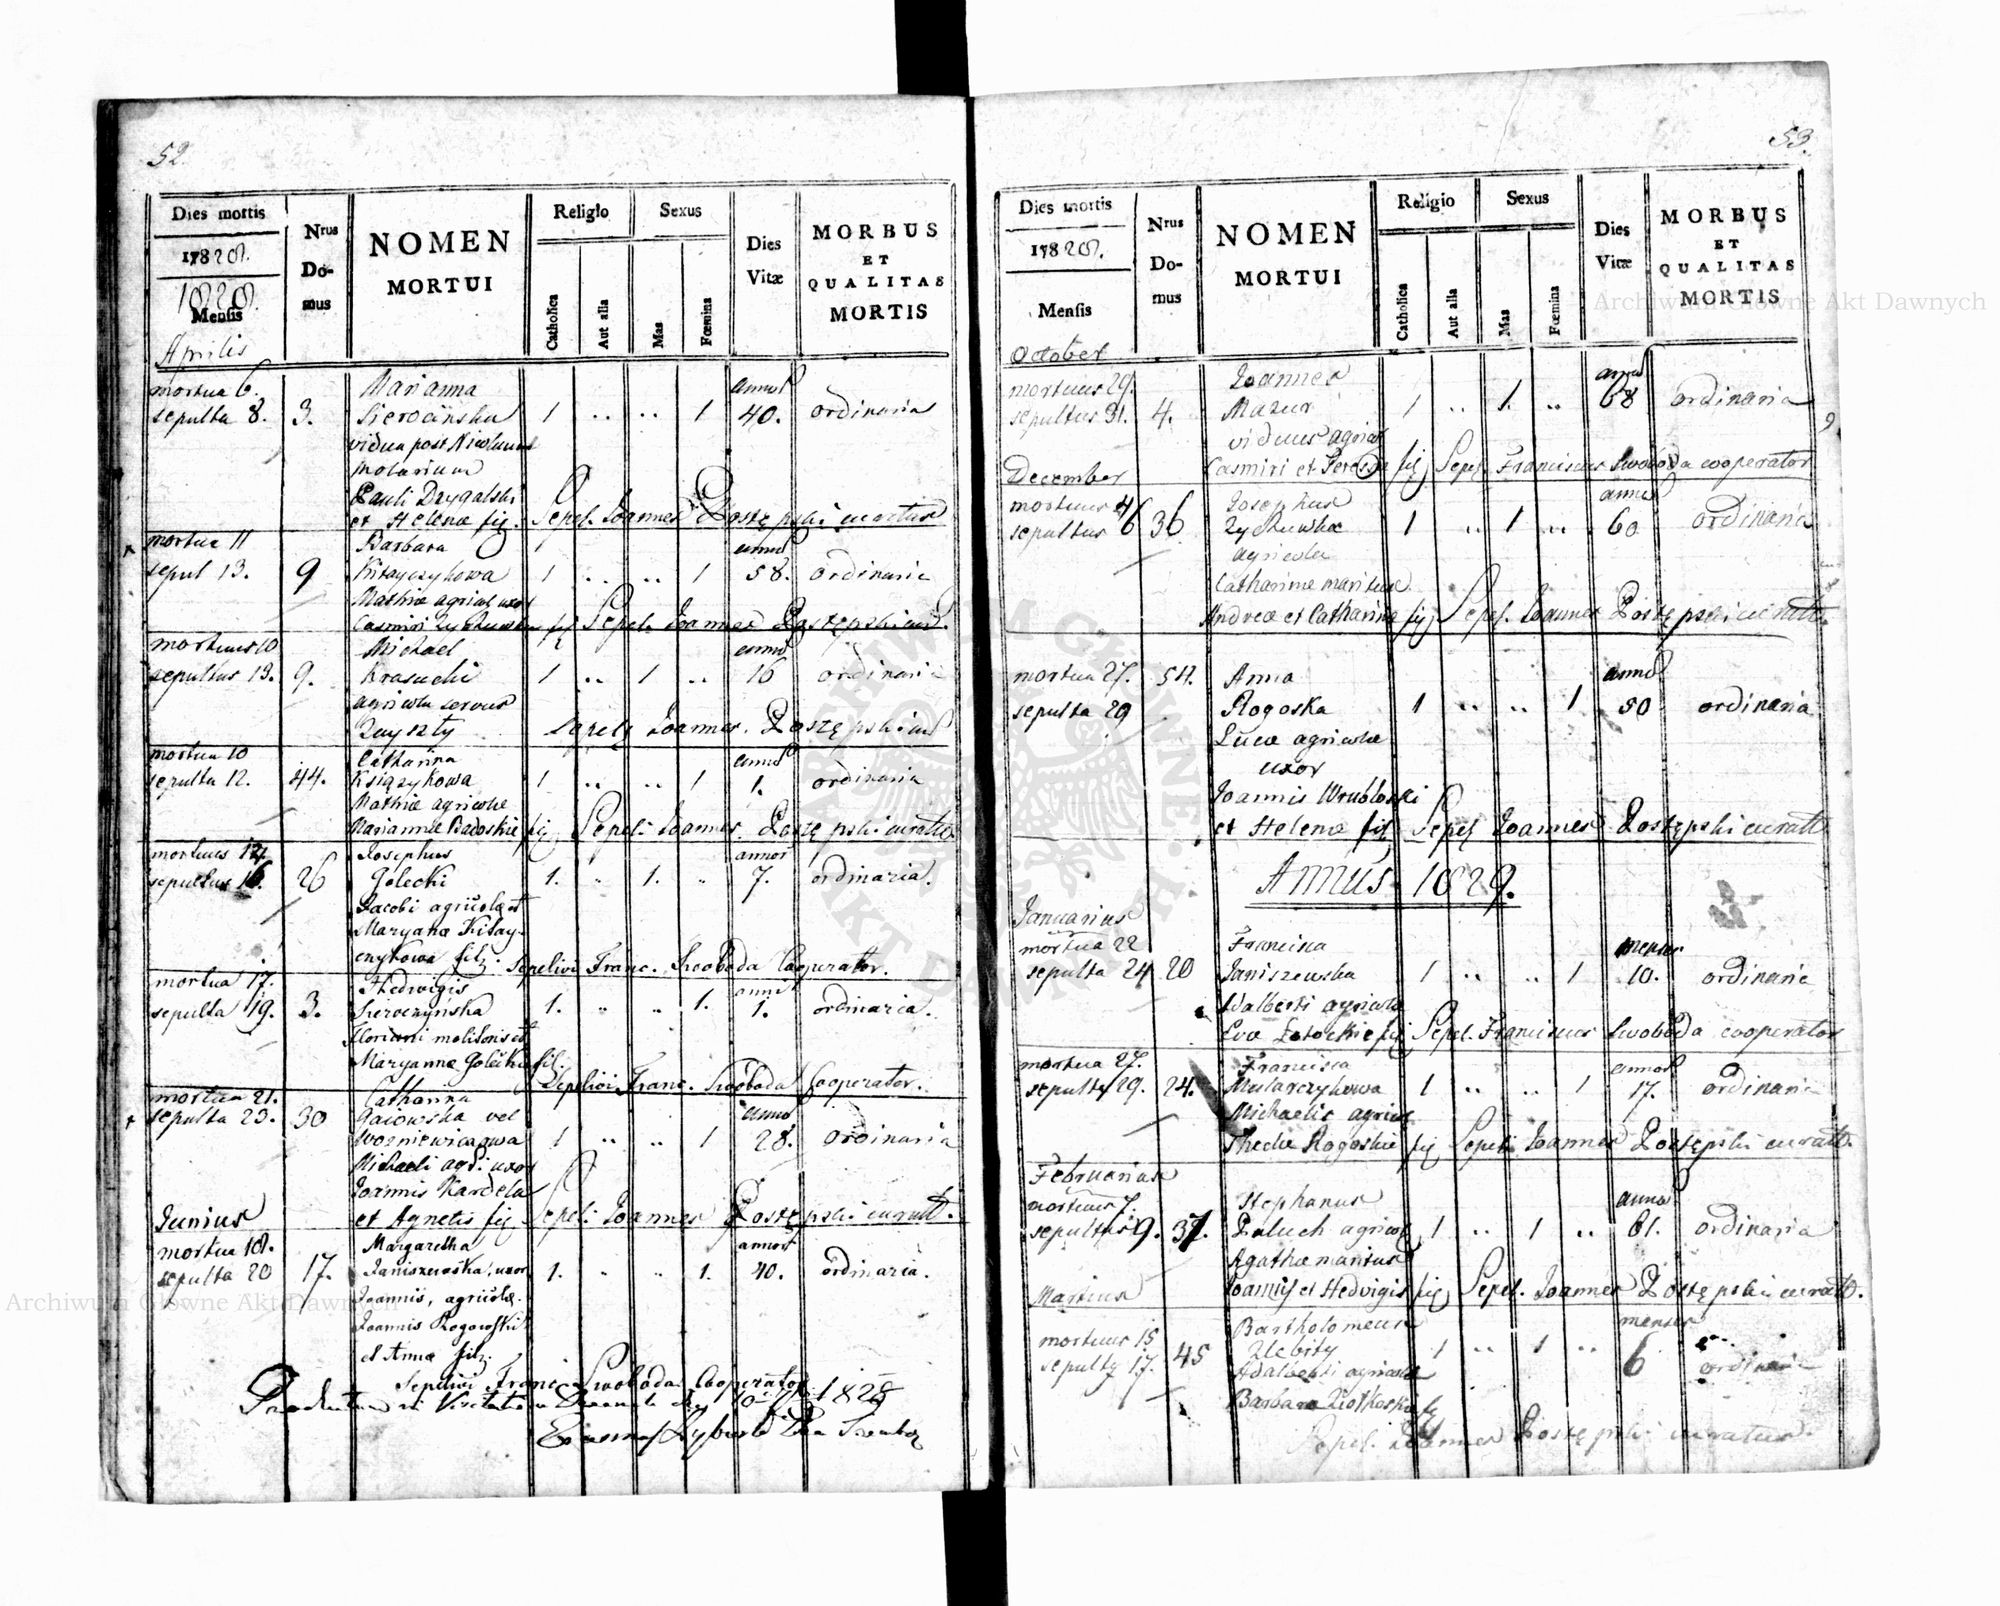 52.
Dies mortis
17828.
1828.
Mensis
Aprilis
Nrus
Do-
mus
NOMEN
MORTUI
Religio
Sexus
Catholica
Aut alia
Mas
Fœmina
Dies
Vitæ
MORBUS
ET
QUALITAS
MORTIS
mortua 6.
sepulta 8. 3.
Marianna
Sierocinska
vidua post Nicolaum
molarium
Pauli Drygalski
et Helenæ fil.
1 .. .. 1
annor
40. ordinaria
Sepel. Joannes Postępski curatus
mortua 11
sepul 13. 9
Barbara
Kitayczykowa
Mathiæ agricol uxor
Casmiri Zychowski fil
1 .. .. 1
annor
58. ordinaria
Sepeli Joannes Postępski cur.
mortuus 10
sepultus 13. 9.
Michael
Krasucki
agricola servus
1 .. 1 ..
annor
16 ordinaria
Sepely Joannes. Postępski cur
mortua 10
sepulta 12. 44.
Catharina
Książykowa
Mathiæ agricolæ
Mariannæ Badoskie fil
1 .. .. 1
annor
1. ordinaria
Sepeli Joannes. Postępski curatus
mortuus 14.
sepultus 16. 26
Josephus
Golecki
Jacobi agricolæ et
Maryanæ Kitay-
czykowa filz.
1. " 1. "
annor
7. ordinaria.
Sepelivi Franc. Swoboda Cooperator.
mortua 17.
sepulta 19. 3.
Hedwigis
Sieroczyńska
Floriani molitoris et
Maryannæ Golecka fil.
1. " " 1.
anni
1. ordinaria.
Sepelivi Franc. Swoboda Cooperator.
mortua 21.
sepulta 23. 30
Catharina
Gaiowska vel
Wozniewiczowa
Michaeli agri. uxor
Joannis Kardela
et Agnetis fil
1 .. .. 1
annor
28. ordinaria
Sepeli Joannes Postępski curatt.
Junius
mortua 18.
sepulta 20 17.
Margaretha
Janiszewska, uxor
Joannis, agricolæ.
Joannis Rogowski
et Annæ filz.
1. " " 1.
annor
40. ordinaria.
Sepelivi Franc Swoboda Cooperator
1828
53.
Dies mortis
17828.
Mensis
October
Nrus
Do-
mus
NOMEN
MORTUI
Religio
Sexus
Catholica
Aut alia
Mas
Fœmina
Dies
Vitæ
MORBUS
ET
QUALITAS
MORTIS
mortuus 29.
sepultus 31. 4.
Joannes
Mazur
viduus agricol
Casmiri et Teressa fil
1 .. 1. ..
annor
68 ordinaria
Sepel. Franciscus Swoboda cooperator
December
mortuus 4
sepultus 6 36
Josephus
Zychowska
agricola
Catharinæ maritus
Andreæ et Catharinæ fil
1 .. 1 ..
annor
60 ordinaria
Sepel. Joannes Postępski curatt.
mortua 27. 54.
sepulta 29
Anna
Rogoska
Lucæ agricolæ
uxor
Joannis Wrubloski
et Helenæ fil
1 .. .. 1
annor
50 ordinaria
Sepel Joannes Postępski curatt
Annus 1829.
Januarius
mortua 22
sepulta 24 20
Francisca
Janiszewska
Adalberti agricolæ
Evæ Potockie fil
1 .. .. 1
menses
10. ordinaria
Sepel. Franciscus Swoboda cooperator
mortua 27.
sepulta 29. 24.
Francisca
Mularczykowa
Michaelis agricol
Theclæ Rogoskie fil
1 .. .. 1
annor
17. ordinaria
Sepeli Joannes Postępski curatt.
Februarius
mortuus 7.
sepultus 9. 37.
Stephanus
Paluch agricol
Agathæ maritus
Joannis et Hedvigis fil
1 .. 1 ..
annor
61. ordinaria
Sepel. Joannes Postępski curatt.
Martius
mortuus 15
sepult 17. 45
Bartholomeus
Zlebity
Adalberti agricolæ
Barbara Ziołkoska fil
1 .. 1 ..
menses
6 ordinaria
Sepel. Joannes Postępski curatus.
Archiwum Główne Akt Dawnych
Archiwum Główne Akt Dawnych
ARCHIWUM GŁÓWNE AKT DAWNYCH